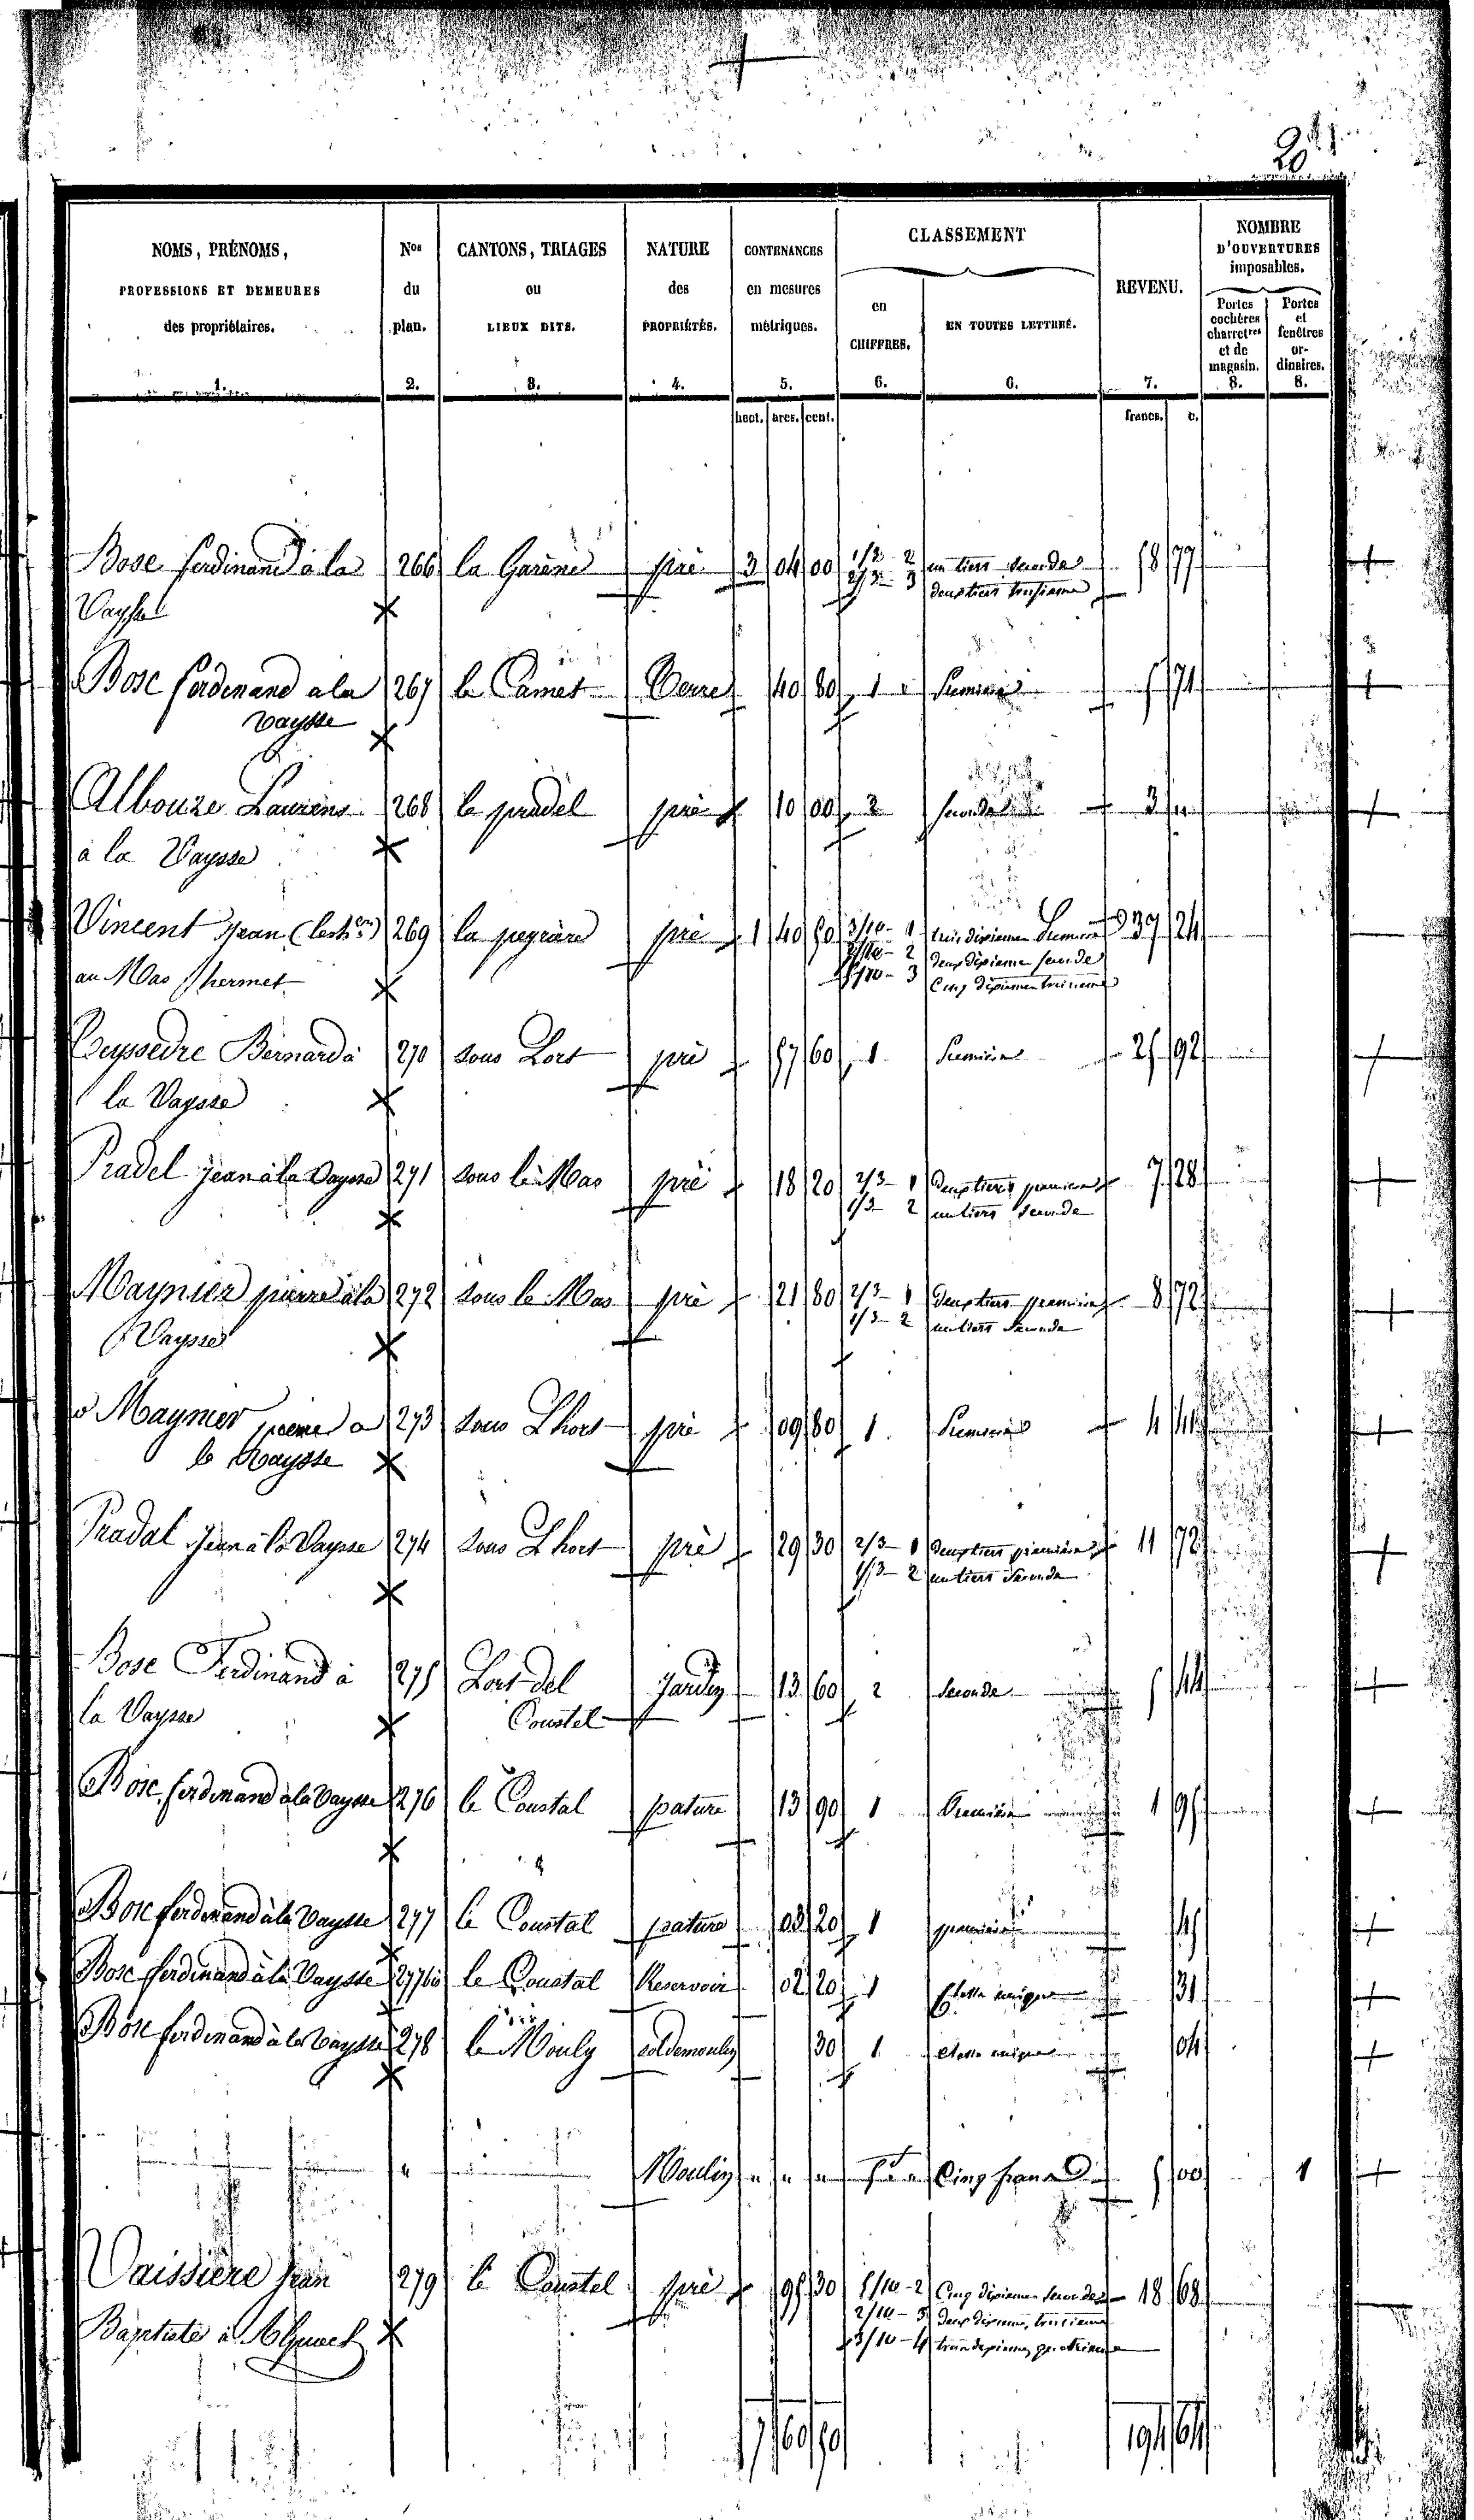 20
NOMS, PRÉNOMS, PROFESSIONS ET DEMEURES des propriétaires. 1.
Nos du plan. 2.
CANTONS, TRIAGES ou LIEUX DITS. 3.
NATURE des PROPRIÉTÉS. 4.
CONTENANCES en mesures métriques. 5.
CLASSEMENT
en CHIFFRES. 6.
EN TOUTES LETTRES. 6.
REVENU. 7.
NOMBRE D'OUVERTURES imposables.
Portes cochères charretres et de magasin. 8.
Portes et fenêtres ordinaires. 8.
hect. ares. cent. francs. c.
Bosc ferdinand à la 266 la Garène pré 3 04 00 1/3 - 2 un tiers seconde 18 77
Vaysse 2/3 - 3 deux tiers troisième
Bosc ferdinand a la 267 le Camet 40 80 1 Première 5 71
vaysse
Albouze Laurens 268 le pradel pré 10 00 2 seconde 3
à la Vaysse
Vincent Jean 269 la peyrière pré 1 40 90 3/10 - 1 trois dixièmes Première 39 24
au Mas 2/10 - 2 deux dixième seconde
5/10 - 3 Cinq dixièmes troisième
Bernard à 270 sous Lort pré 57 60 1 Première 25 92
la Vaysse
Pradel jean à la Vaysse 271 sous le Mas pré 18 20 2/3 - 1 deux tiers première 7 28
1/3 - 2 un tiers seconde
Maynier pierre à la 272 sous le Mas pré 21 80 2/3 - 1 deux tiers première 8 72
Vaysse 1/3 - 2 un tiers seconde
Maynier pierre a 273 sous Lhort pré 09 80 1 Première 4 41
la Vaysse
Pradal Jean à la Vaysse 274 sous Lhort pré 29 30 2/3 - 1 deux tiers première 11 72
1/3 - 2 un tiers seconde
Bosc Ferdinand à 275 Lort del jardin 13 60 2 Seconde 5 44
la Vaysse Coustel
Bosc ferdinand à la Vaysse 276 le Coustal pature 13 90 1 Première 1 95
Bosc ferdinand à la Vaysse 277 le Coustal pature 03 20 1 première 45
Bosc ferdinand à la Vaysse 277 bis le Coustal Reservoir 02 20 1 Classe unique 31
Bosc ferdinand à la Vaysse 278 le Mouly sol de moulin 30 1 classe unique 04
Moulin Cinq francs 5 00 1
Vaissière Jean 279 le Coustel pré 95 30 5/10 - 2 Cinq dixièmes seconde 18 68
Baptiste à 2/10 - 3 deux dixième, troisième
3/10 - 4 trois dixièmes quatrième
7 60 90 194 64